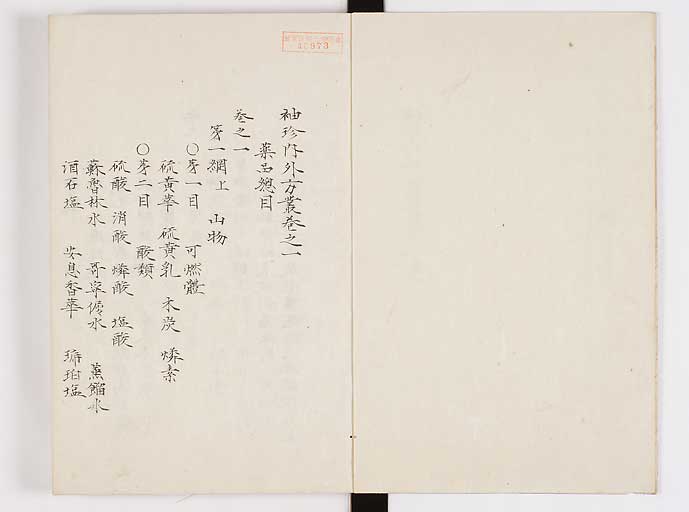 袖珍内外方叢巻之一
薬品總目
巻之一
第一綱上　山物
○第一目　可燃體
硫黄華　硫黄乳　木炭　燐素
○第二目　酸類
硫酸　消酸　燐酸　塩酸
蘇魯林水　蒸餾水
酒石塩　安息香華　琥珀塩
40973